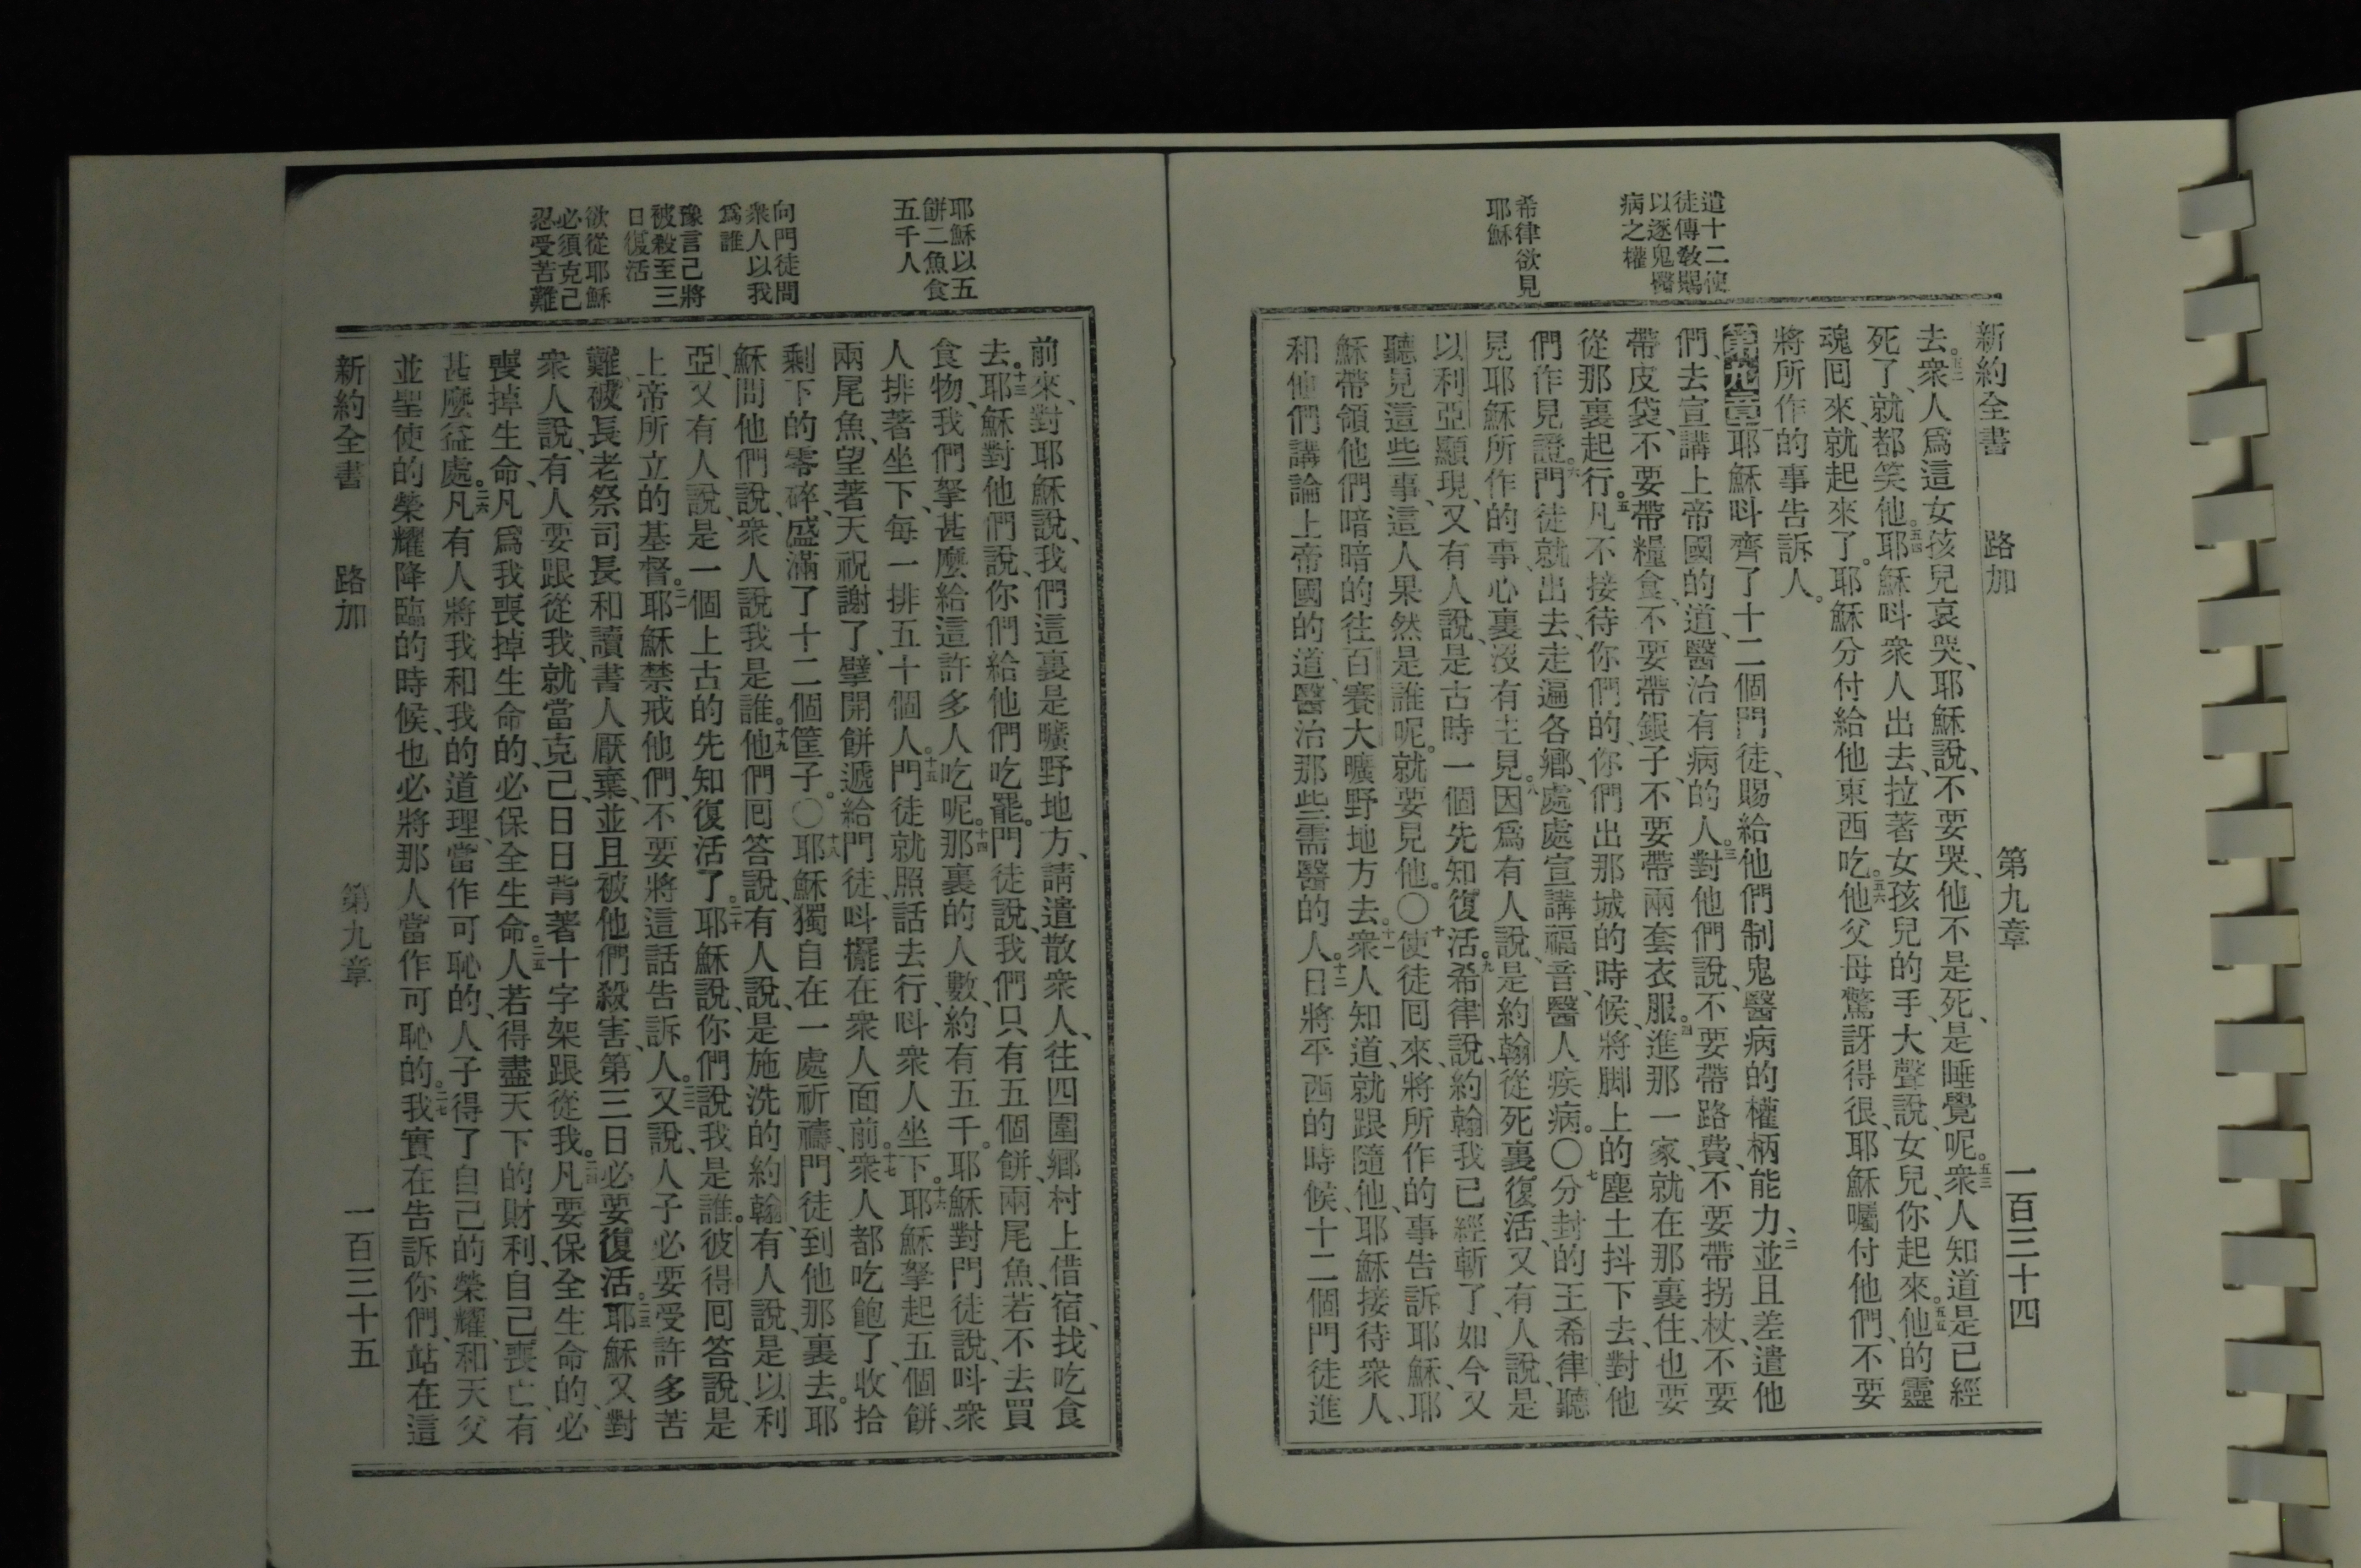 新約全書 路加 第九章 一百三十四
遣十二使
徒傳教賜
以逐鬼醫
病之權
希律欲見
耶穌
去。五二衆人爲這女孩兒哀哭、耶穌說、不要哭、他不是死、是睡覺呢。五三衆人知道是已經
死了、就都笑他。五四耶穌呌衆人出去、拉著女孩兒的手、大聲說、女兒、你起來。五五他的靈
魂囘來、就起來了。耶穌分付給他東西吃。五六他父母驚訝得很、耶穌囑付他們、不要
將所作的事告訴人。
第九章一耶穌呌齊了十二個門徒、賜給他們制鬼醫病的權柄能力、二並且差遣他
們、去宣講上帝國的道、醫治有病的人。三對他們說、不要帶路費、不要帶拐杖、不要
帶皮袋、不要帶糧食、不要帶銀子、不要帶兩套衣服。四進那一家、就在那裏住、也要
從那裏起行。五凡不接待你們的、你們出那城的時候、將脚上的塵土抖下去、對他
們作見證。六門徒就出去、走遍各鄉、處處宣講福音、醫人疾病。〇七分封的王希律、聽
見耶穌所作的事、心裏沒有主見。因爲有人說、是約翰從死裏復活、八又有人說、是
以利亞顯現、又有人說、是古時一個先知復活。九希律說、約翰我已經斬了、如今又
聽見這些事、這人果然是誰呢。就要見他。〇十使徒囘來、將所作的事告訴耶穌、耶
穌帶領他們暗暗的往百賽大曠野地方去。十一衆人知道、就跟隨他、耶穌接待衆人、
和他們講論上帝國的道、醫治那些需醫的人。十二日將平西的時候、十二個門徒進
耶穌以五
餅二魚食
五千人
向門徒問
衆人以我
爲誰
豫言己將
被殺至三
日復活
欲從耶穌
必須克己
忍受苦難
前來、對耶穌說、我們這裏是曠野地方、請遣散衆人、往四圍鄉村上借宿、找吃食
去。十三耶穌對他們說、你們給他們吃罷。門徒說、我們只有五個餅、兩尾魚、若不去買
食物、我們拏甚麼給這許多人吃呢。十四那裏的人數、約有五千。耶穌對門徒說、呌衆
人排著坐下、每一排五十個人。十五門徒就照話去行、呌衆人坐下。十六耶穌拏起五個餅、
兩尾魚、望著天祝謝了、擘開餅遞給門徒、呌擺在衆人面前。十七衆人都吃飽了、收拾
剩下的零碎、盛滿了十二個筐子。〇十八耶穌獨自在一處祈禱、門徒到他那裏去。耶
穌問他們說、衆人說我是誰。十九他們囘答說、有人說、是施洗的約翰、有人說、是以利
亞、又有人說、是一個上古的先知復活了。二十耶穌說、你們說我是誰。彼得囘答說、是
上帝所立的基督。二一耶穌禁戒他們、不要將這話告訴人。二二又說、人子必要受許多苦
難、被長老祭司長和讀書人厭棄、並且被他們殺害、第三日必要復活。二三耶穌又對
衆人說、有人要跟從我、就當克己、日日背著十字架跟從我。二四凡要保全生命的、必
喪掉生命、凡爲我喪掉生命的、必保全生命。二五人若得盡天下的財利、自己喪亡、有
甚麼益處。二六凡有人將我和我的道理、當作可恥的、人子得了自己的榮耀、和天父
並聖使的榮耀降臨的時候、也必將那人當作可恥的。二七我實在告訴你們、站在這
新約全書 路加 第九章 一百三十五